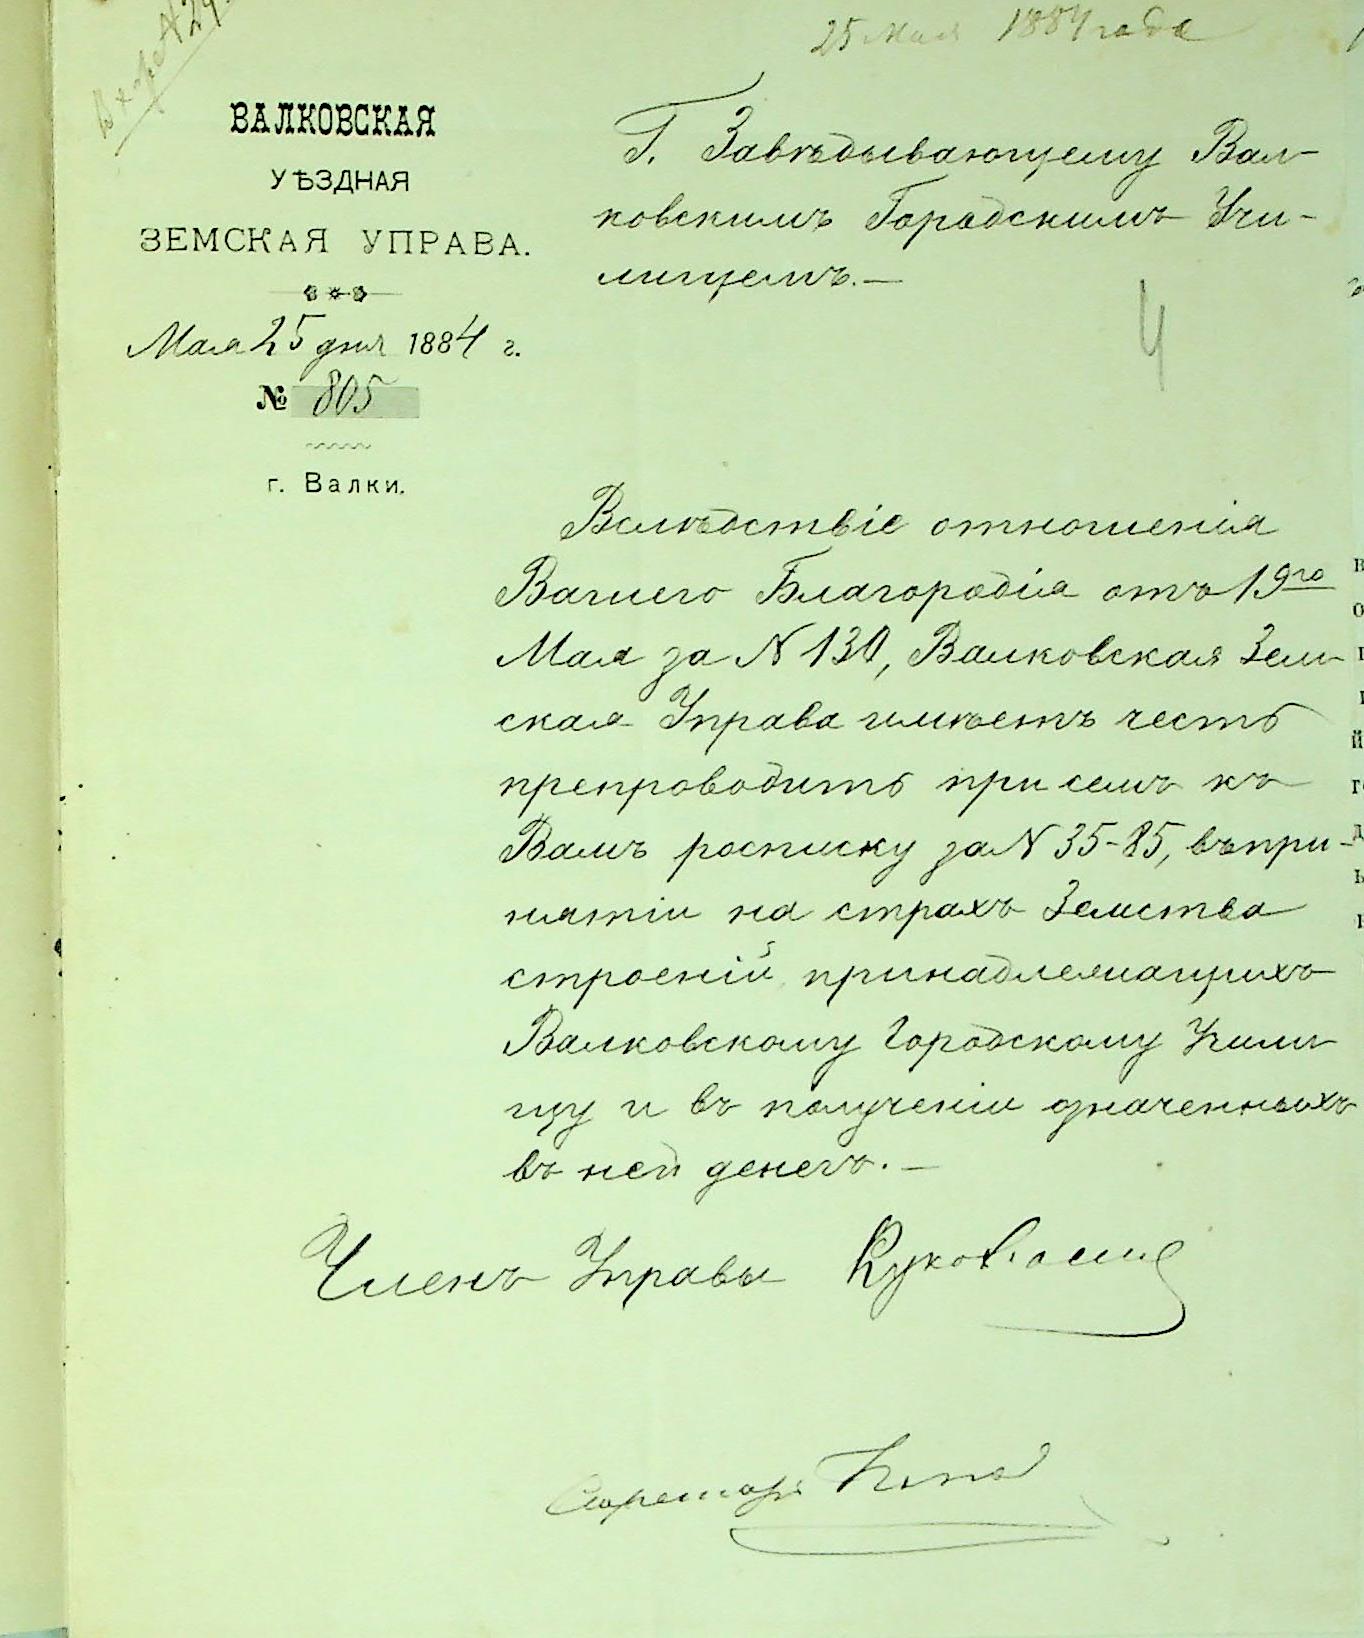 25 Мая 1884 года
ВАЛКОВСКАЯ
УѢЗДНАЯ
ЗЕМСКАЯ УПРАВА.
Мая 25 дня 1884 г.
№ 805
г. Валки.
Г. Завѣдывающему Вал-
ковскимъ Городскимъ Учи-
лищемъ.—
4
Вслѣдствіе отношенія
Вашего Благородія отъ 19го
Мая за N 130, Валковская Зем
ская Управа имѣетъ честь
препроводить при семъ къ
Вамъ росписку за N 35-85, въ при-
нятіи на страхъ Земства
строеній принадлежащихъ
Валковскому Городскому Учили
щу и въ полученіи означенныхъ
въ ней денегъ.—
Членъ Управы
Секретарь